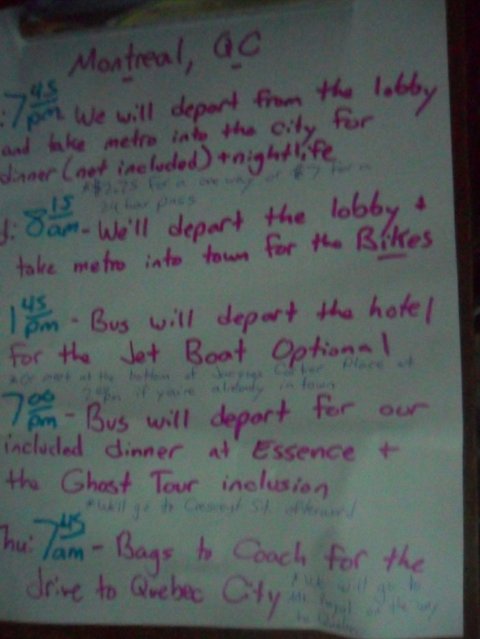 Montreal, QC
: 7 45 pm We will depart from the lobby
and take metro into the city for
dinner (not included) + nightlife
*$2.75 for a one way or $7 for a
24 hour pass
: 8 15 am - We'll depart the lobby +
take metro into town for the Bikes
1 45 pm - Bus will depart the hotel
for the Jet Boat Optional
meet at the bottom of Jacques Cartier Place at
if you're already in town
7 00 pm - Bus will depart for our
included dinner at Essence +
the Ghost Tour inclusion
*We'll go to Crescent St. afterward
hu: 7 45 am - Bags to Coach for the
drive to Quebec City
we will go to
on the way
to Quebec